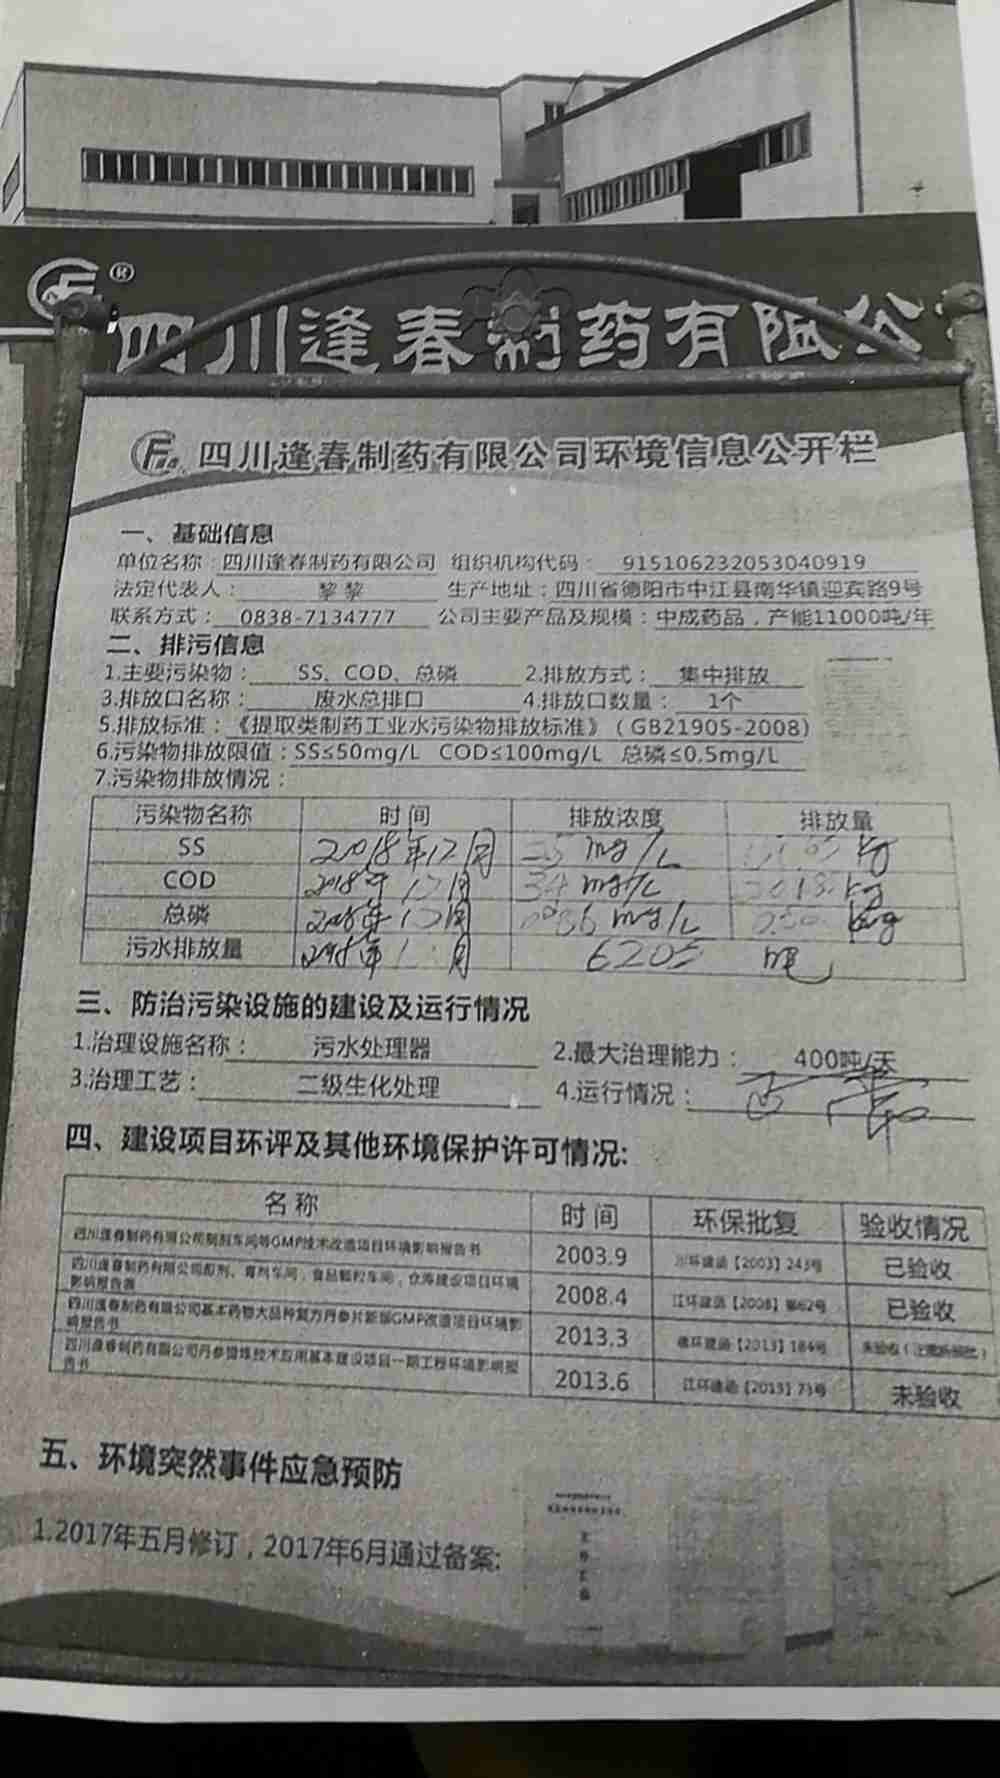 ®
四川逢春制药有限公
四川逢春制药有限公司环境信息公开栏
一、基础信息
单位名称：四川逢春制药有限公司 组织机构代码： 915106232053040919
法定代表人： 黎黎 生产地址：四川省德阳市中江县南华镇迎宾路9号
联系方式： 0838-7134777 公司主要产品及规模：中成药品，产能11000吨/年
二、排污信息
1.主要污染物： SS、COD、总磷 2.排放方式： 集中排放
3.排放口名称： 废水总排口 4.排放口数量： 1个
5.排放标准：《提取类制药工业水污染物排放标准》（GB21905-2008）
6.污染物排放限值：SS≤50mg/L COD≤100mg/L 总磷≤0.5mg/L
7.污染物排放情况：
污染物名称 时间 排放浓度 排放量
SS 2018年12月 mg/L kg
COD 2018年12月 34 mg/L kg
总磷 2018年12月 mg/L kg
污水排放量 2018年 月 6205 吨
三、防治污染设施的建设及运行情况
1.治理设施名称： 污水处理器 2.最大治理能力： 400吨/天
3.治理工艺： 二级生化处理 4.运行情况： 正常
四、建设项目环评及其他环境保护许可情况:
名称 时间 环保批复 验收情况
四川逢春制药有限公司制剂车间等GMP技术改造项目环境影响报告书 2003.9 川环建函【2003】243号 已验收
四川逢春制药有限公司酊剂、膏剂车间，食品颗粒车间，仓库建设项目环境影响报告表 2008.4 江环建函【2008】第62号 已验收
四川逢春制药有限公司基本药物大品种复方丹参片新版GMP改造项目环境影响报告书 2013.3 德环建函【2013】184号 未验收
四川逢春制药有限公司丹参 技术应用基本建设项目一期工程环境影响报告书 2013.6 江环建函【2013】73号 未验收
五、环境突然事件应急预防
1.2017年五月修订，2017年6月通过备案: